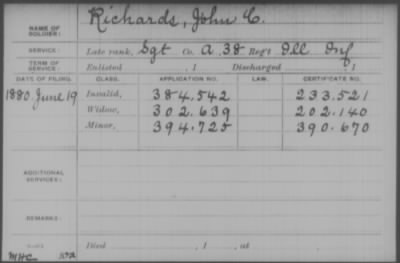 NAME OF SOLDIER: Richards, John C.
SERVICE: Late rank, Sgt Co. A, 38 Reg't Ill Inf
TERM OF SERVICE: Enlisted , 1 Discharged , 1
DATE OF FILING. CLASS. APPLICATION NO. LAW. CERTIFICATE NO.
1880 June 19 Invalid, 384.542 233.521
Widow, 302.639 202.140
Minor, 394.725 390.670
ADDITIONAL SERVICES:
REMARKS:
Died , 1 , at